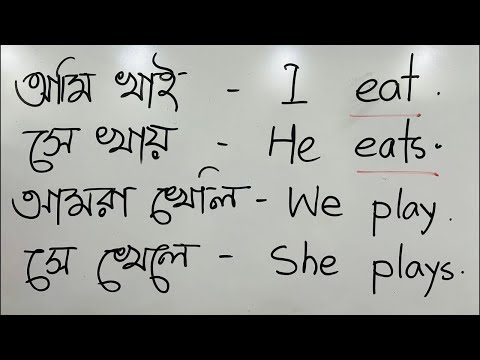 আমি খাই - I eat.
সে খায় - He eats.
আমরা খেলি - We play.
সে খেলে - She plays.